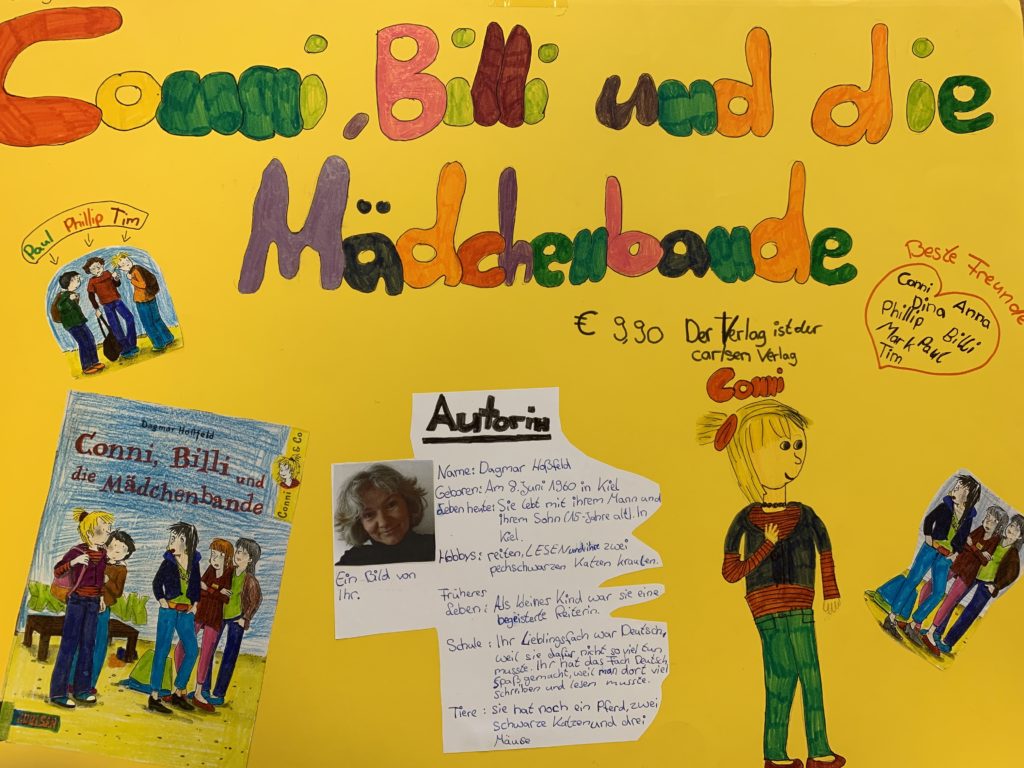 Conni, Billi und die
Mädchenbande
Paul Phillip Tim
Beste Freunde
Conni Anna
Dina
Phillip Billi
Mark Paul
Tim
€ 9,90 Der Verlag ist der
carlsen Verlag
Conni
Dagmar Hoßfeld
Conni, Billi und
die Mädchenbande
Conni & Co
CARLSEN
Autorin
Name: Dagmar Hoßfeld
Geboren: Am 8. Juni 1960 in Kiel
Leben heute: Sie lebt mit ihrem Mann und
ihrem Sohn (15-Jahre alt). In
Kiel.
Hobbys: reiten, LESEN und ihre zwei
pechschwarzen Katzen kraulen.
Ein Bild von
Ihr.
Früheres
Leben: Als kleines Kind war sie eine
begeisterte Reiterin.
Schule: Ihr Lieblingsfach war Deutsch,
weil sie dafür nicht so viel tun
musste. Ihr hat das Fach Deutsch
spaß gemacht, weil man dort viel
schreiben und lesen musste.
Tiere: sie hat noch ein Pferd, zwei
schwarze Katzen und drei
Mäuse